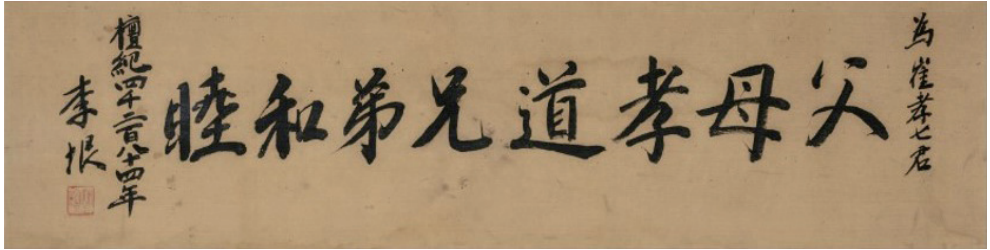 為崔孝七君
父母孝道兄弟和睦
檀紀四千二百八十四年
李垠